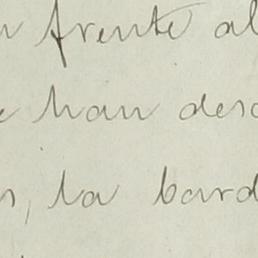 frente al
han desc
, la bard